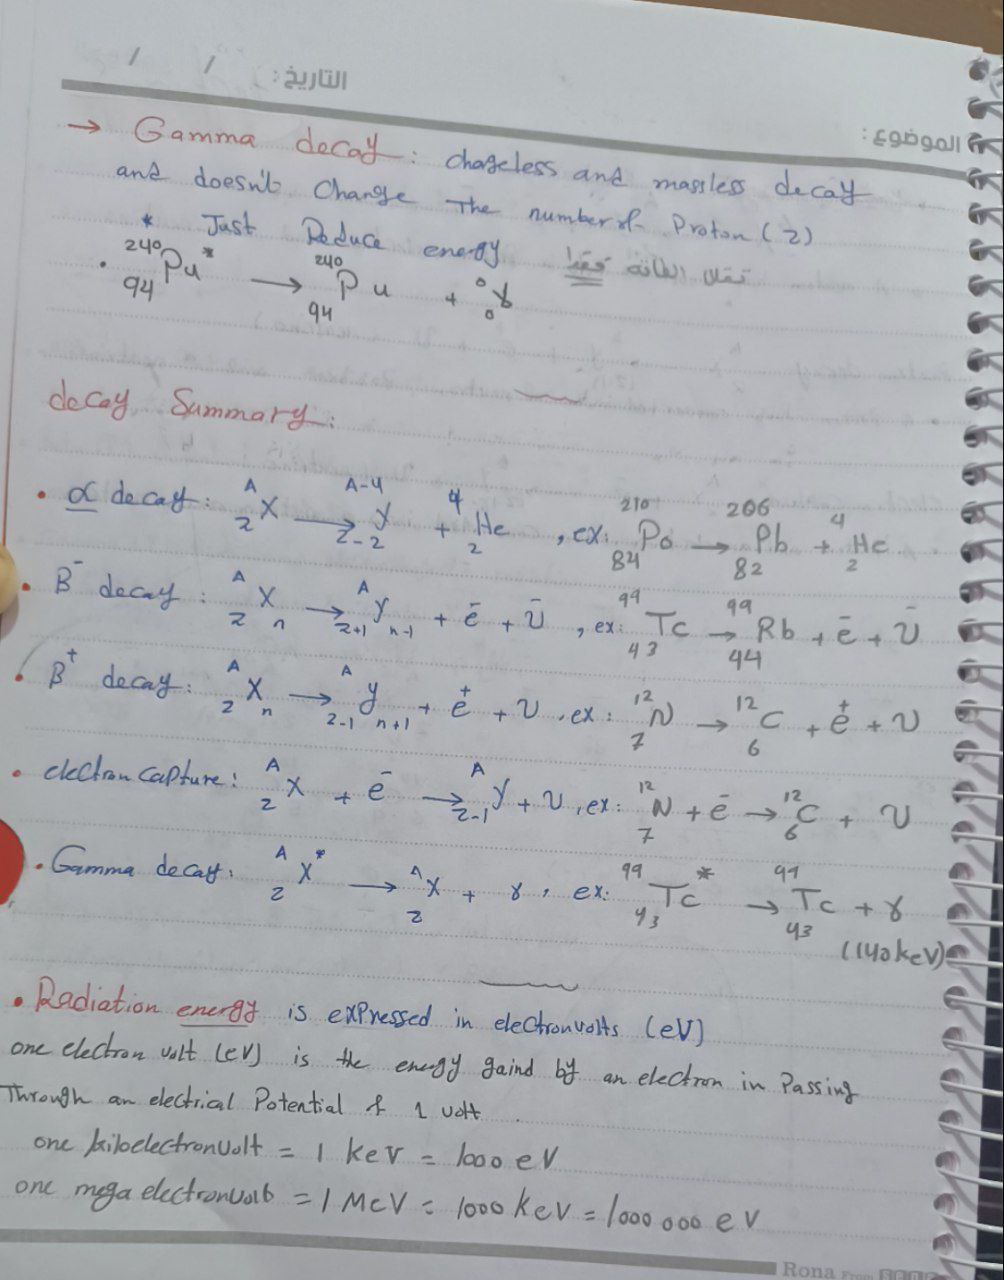 التاريخ: / /
الموضوع:
→ Gamma decay: chageless and massless decay
and doesn't change the number of Proton (Z)
* Just Reduce energy تقلل الطاقة فقط
• ²⁴⁰₉₄Pu* → ²⁴⁰₉₄Pu + ⁰₀γ
decay Summary:
• α decay: ᴬ_Z X → ᴬ⁻⁴_Z-2 Y + ⁴₂He , ex: ²¹⁰₈₄Po → ²⁰⁶₈₂Pb + ⁴₂He
• B⁻ decay: ᴬ_Z X_n → ᴬ_Z+1 Y_n-1 + e⁻ + ῡ , ex: ⁹⁹₄₃Tc → ⁹⁹₄₄Rb + e⁻ + ῡ
• B⁺ decay: ᴬ_Z X_n → ᴬ_Z-1 y_n+1 + e⁺ + υ , ex: ¹²₇N → ¹²₆C + e⁺ + υ
• electron capture: ᴬ_Z X + e⁻ → ᴬ_Z-1 Y + υ , ex: ¹²₇N + e⁻ → ¹²₆C + υ
• Gamma decay: ᴬ_Z X* → ᴬ_Z X + γ , ex: ⁹⁹₄₃Tc* → ⁹⁹₄₃Tc + γ
(140 keV)
• Radiation energy is expressed in electronvolts (eV)
one electron volt (eV) is the energy gaind by an electron in Passing
Through an electrical Potential of 1 volt.
one kiloelectronvolt = 1 keV = 1000 eV
one mega electronvolt = 1 MeV = 1000 KeV = 1000 000 eV
Rona From